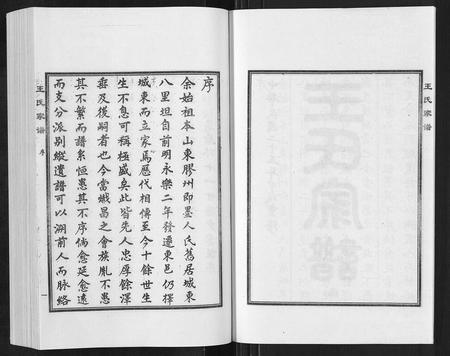 王氏家譜
序
余始祖本山東膠州即墨人氏舊居城東
八里坦自前明永樂二年發遷東邑仍擇
城東而立家焉歷代相傳至今十餘世生
生不息可稱極盛矣此皆先人忠厚餘澤
垂及後嗣者也今當熾昌之會族胤不患
其不繁而譜系恒患其不序倘愈延愈遠
而支分派別縱遺譜可以溯前人而脈絡
王氏家譜
序
一